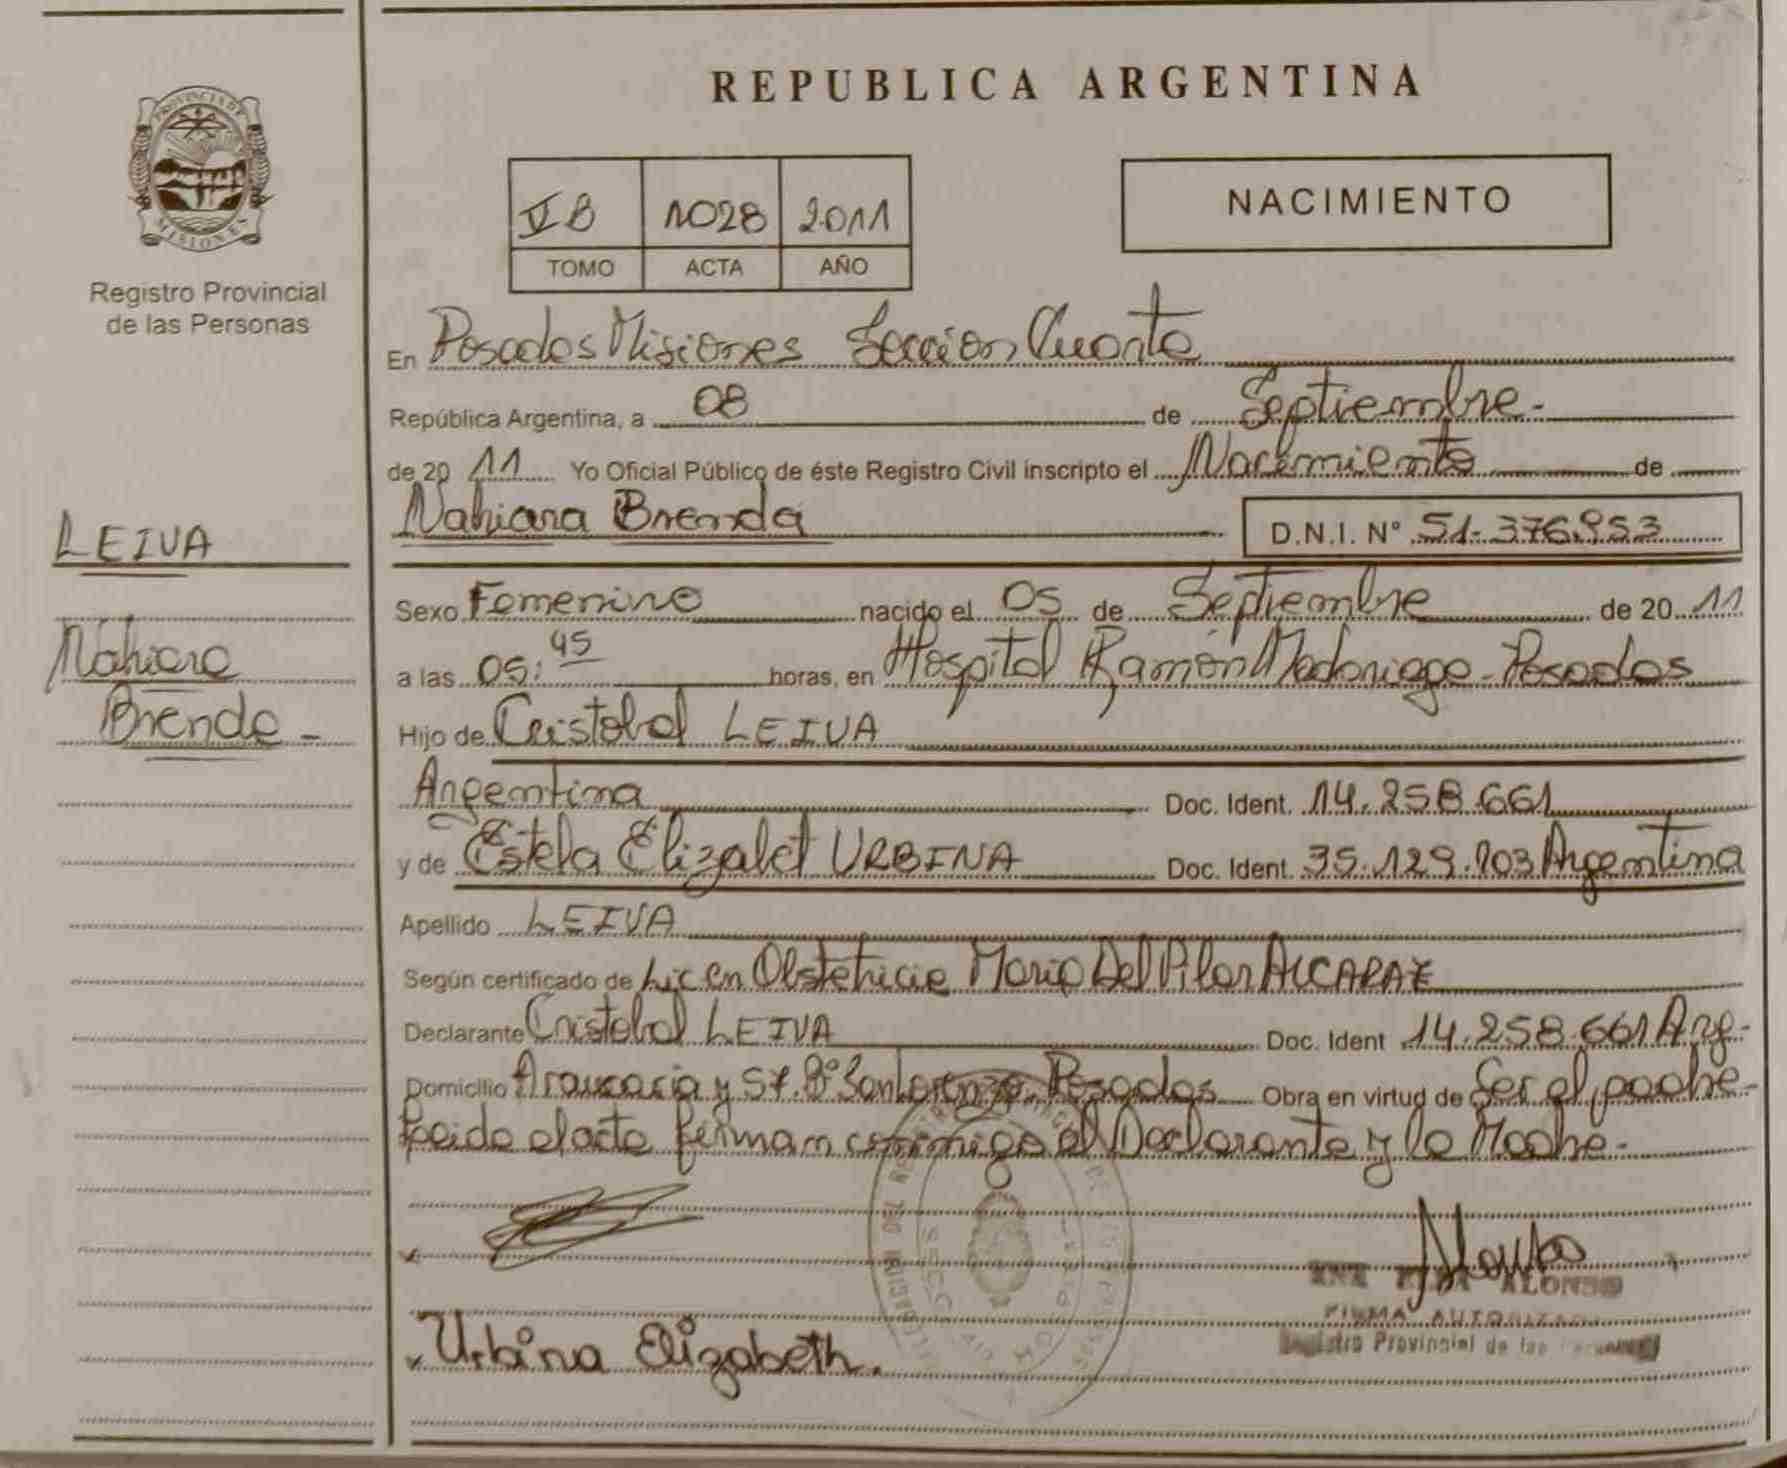 PROVINCIA DE
MISIONES
Registro Provincial
de las Personas
LEIVA
Nahiara
Brenda -
REPUBLICA ARGENTINA
V B 1028 2011
TOMO ACTA AÑO
NACIMIENTO
En Posadas Misiones Sección Cuarta
República Argentina, a 08 de Septiembre -
de 20 11 Yo Oficial Público de éste Registro Civil inscripto el Nacimiento de
Nahiara Brenda D.N.I. Nº 51.376.953
Sexo Femenino nacido el 05 de Septiembre de 20 11
a las 05:45 horas, en Hospital Ramón Madariaga - Posadas
Hijo de Cristobal LEIVA
Argentina Doc. Ident. 14.258.661
y de Estela Elizabet URBINA Doc. Ident. 35.129.703 Argentina
Apellido LEIVA
Según certificado de Lic en Obstetricia Maria Del Pilar ALCARAZ
Declarante Cristobal LEIVA Doc. Ident 14.258.661 Arg-
Domicilio Araucaria y 57. Bº San Lorenzo. Posadas Obra en virtud de Ser el padre-
Leida el acta firman conmigo el Declarante y la Madre-
ALONSO
FIRMA AUTORIZADA
Registro Provincial de las Personas
Urbina Elizabeth.